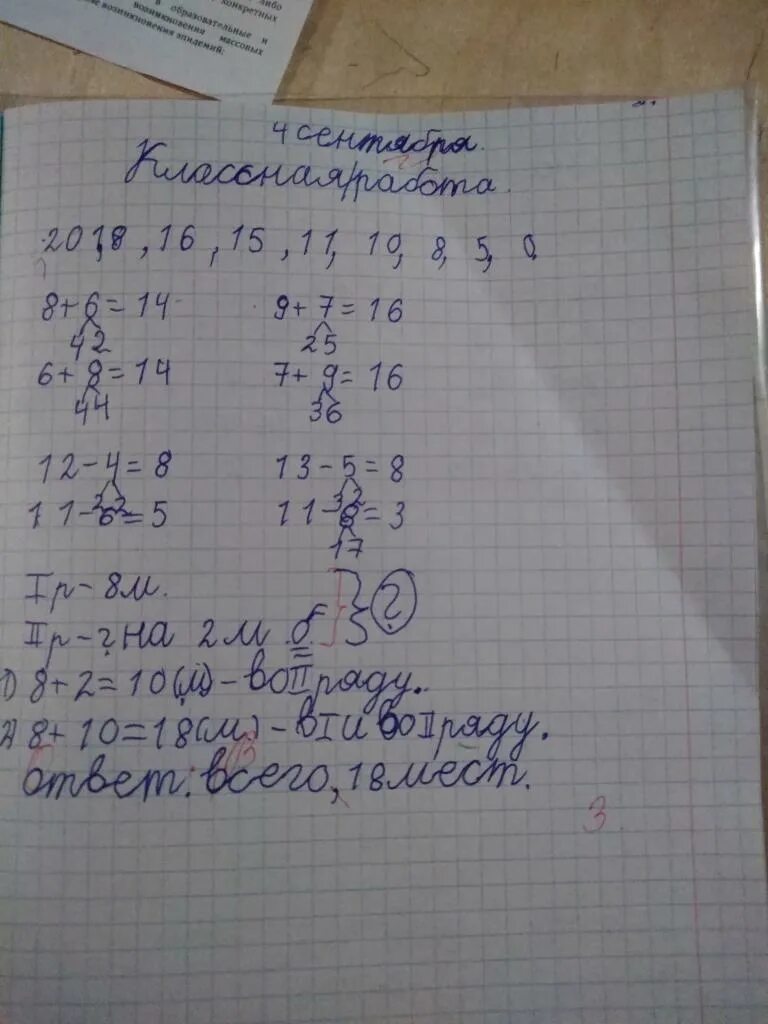 либо
конкретных
в образовательные и
возникновения массовых
возникновения эпидемий:
4 сентября.
Классная работа.
20, 18, 16, 15, 11, 10, 8, 5, 0.
8+6=14 9+7=16
42 25
6+8=14 7+9=16
44 36
12-4=8 13-5=8
22 32
11-6=5 11-8=3
17
I р - 8 м.
II р - ? на 2 м б. ?
1) 8+2=10(м) - во II ряду.
2) 8+10=18(м) - в I и во II ряду.
ответ: всего, 18 мест.
В
3